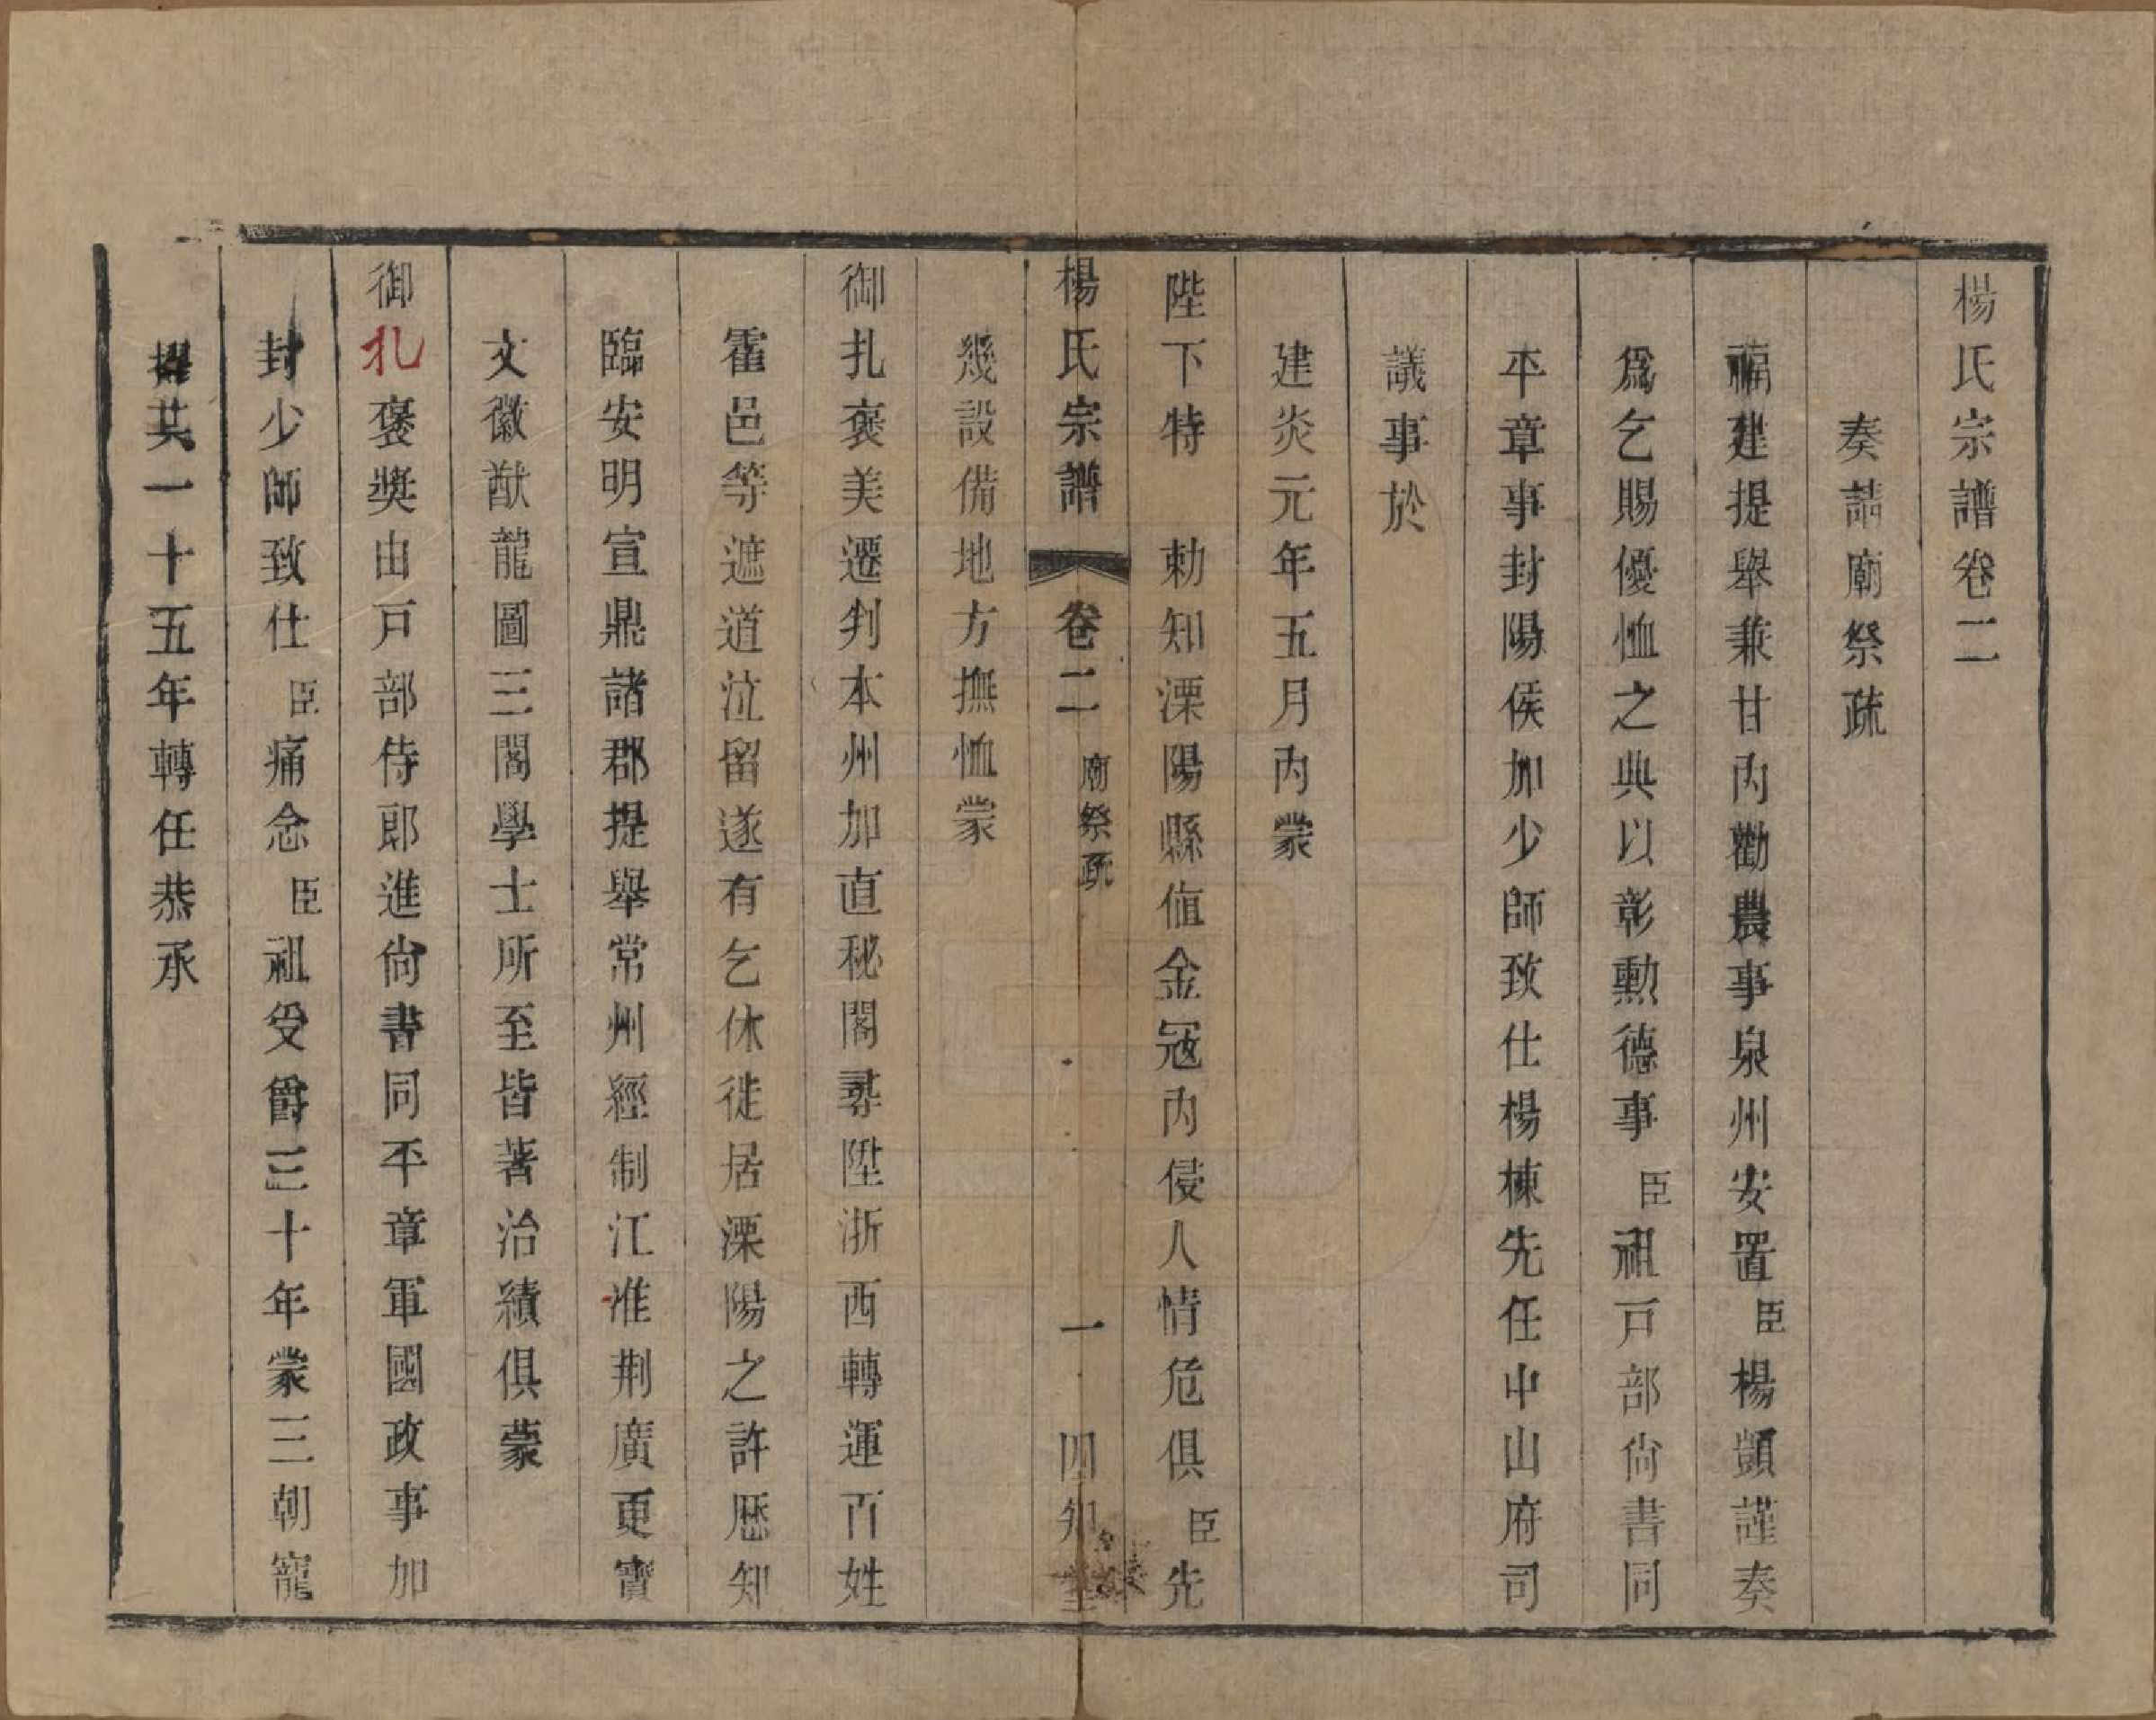 楊氏宗譜卷二
奏請廟祭疏
福建提舉兼甘丙勸農事泉州安置臣楊顗謹奏
爲乞賜優恤之典以彰勲德事臣祖戸部尙書同
平章事封陽侯加少師致仕楊棟先任中山府司
議事於
建炎元年五月內蒙
陛下特 勅知溧陽縣値金冦內侵人情危俱臣先
楊氏宗譜 卷二 廟祭疏 一 四知堂
幾設備地方撫恤蒙
御扎褒美遷判本州加直秘閣尋陞浙西轉運百姓
霍邑等遮道泣留遂有乞休徙居溧陽之許歷知
臨安明宣鼎諸郡提舉常州經制江淮荆廣更寶
文徽猷龍圖三閣學士所至皆著治績俱蒙
御札褒奬由戸部侍郎進尙書同平章軍國政事加
封少師致仕臣痛念臣祖受爵三十年蒙三朝寵
擢共一十五年轉任恭承